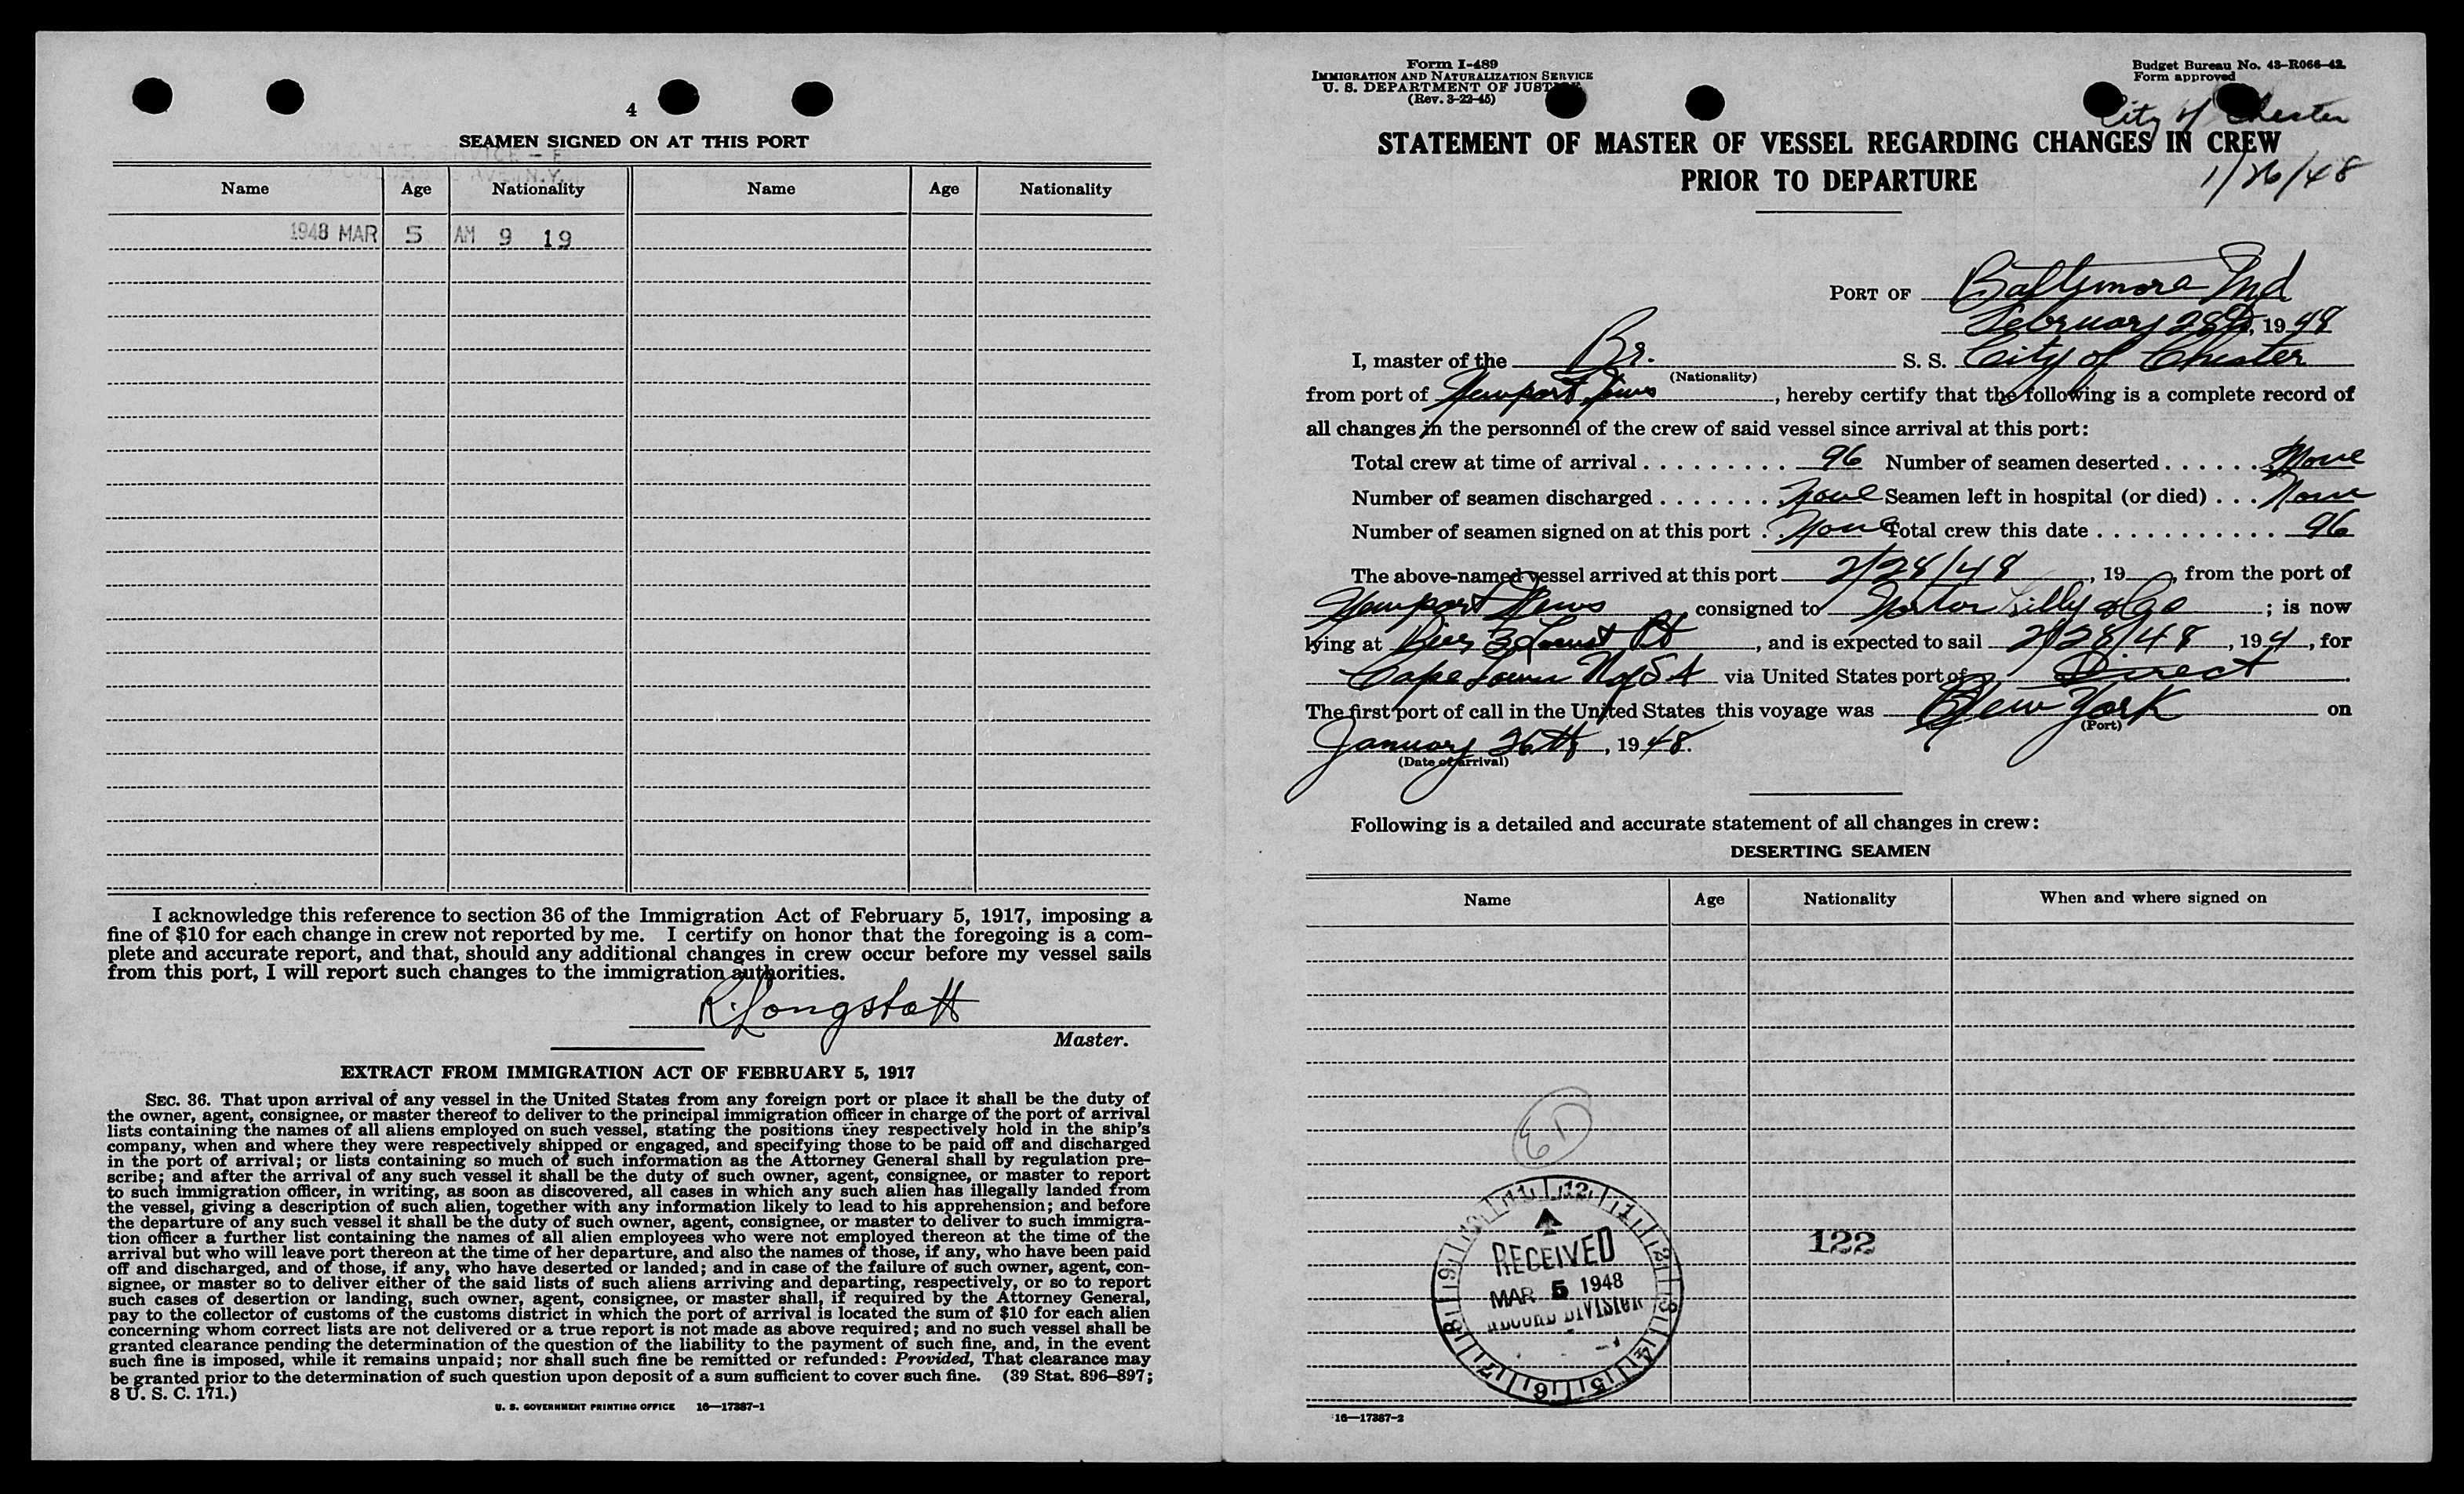 4
SEAMEN SIGNED ON AT THIS PORT
Name Age Nationality Name Age Nationality
1948 MAR 5 AM 9 19
I acknowledge this reference to section 36 of the Immigration Act of February 5, 1917, imposing a
fine of $10 for each change in crew not reported by me. I certify on honor that the foregoing is a com-
plete and accurate report, and that, should any additional changes in crew occur before my vessel sails
from this port, I will report such changes to the immigration authorities.
R. Longstaff
Master.
EXTRACT FROM IMMIGRATION ACT OF FEBRUARY 5, 1917
SEC. 36. That upon arrival of any vessel in the United States from any foreign port or place it shall be the duty of
the owner, agent, consignee, or master thereof to deliver to the principal immigration officer in charge of the port of arrival
lists containing the names of all aliens employed on such vessel, stating the positions they respectively hold in the ship's
company, when and where they were respectively shipped or engaged, and specifying those to be paid off and discharged
in the port of arrival; or lists containing so much of such information as the Attorney General shall by regulation pre-
scribe; and after the arrival of any such vessel it shall be the duty of such owner, agent, consignee, or master to report
to such immigration officer, in writing, as soon as discovered, all cases in which any such alien has illegally landed from
the vessel, giving a description of such alien, together with any information likely to lead to his apprehension; and before
the departure of any such vessel it shall be the duty of such owner, agent, consignee, or master to deliver to such immigra-
tion officer a further list containing the names of all alien employees who were not employed thereon at the time of the
arrival but who will leave port thereon at the time of her departure, and also the names of those, if any, who have been paid
off and discharged, and of those, if any, who have deserted or landed; and in case of the failure of such owner, agent, con-
signee, or master so to deliver either of the said lists of such aliens arriving and departing, respectively, or so to report
such cases of desertion or landing, such owner, agent, consignee, or master shall, if required by the Attorney General,
pay to the collector of customs of the customs district in which the port of arrival is located the sum of $10 for each alien
concerning whom correct lists are not delivered or a true report is not made as above required; and no such vessel shall be
granted clearance pending the determination of the question of the liability to the payment of such fine, and, in the event
such fine is imposed, while it remains unpaid; nor shall such fine be remitted or refunded: Provided, That clearance may
be granted prior to the determination of such question upon deposit of a sum sufficient to cover such fine. (39 Stat. 896–897;
8 U. S. C. 171.)
U. S. GOVERNMENT PRINTING OFFICE 16—17387-1
Form I-489
IMMIGRATION AND NATURALIZATION SERVICE
U. S. DEPARTMENT OF JUSTICE
(Rev. 3-22-45)
Budget Bureau No. 43-R066-42.
Form approved
City of Chester
STATEMENT OF MASTER OF VESSEL REGARDING CHANGES IN CREW
PRIOR TO DEPARTURE
1/26/48
PORT OF Baltimore Md
February 28th, 1948
I, master of the Br. S. S. City of Chester
(Nationality)
from port of Newport News, hereby certify that the following is a complete record of
all changes in the personnel of the crew of said vessel since arrival at this port:
Total crew at time of arrival . . . . . . . . . 96 Number of seamen deserted . . . . . . None
Number of seamen discharged . . . . . . . None Seamen left in hospital (or died) . . . None
Number of seamen signed on at this port . . None Total crew this date . . . . . . . . . . . . 96
The above-named vessel arrived at this port 2/28/48, 19 , from the port of
Newport News consigned to Norton Lilly & Co ; is now
lying at Pier 3 Locust Pt, and is expected to sail 2/28/48, 194, for
Cape Town via United States port of Direct
The first port of call in the United States this voyage was New York on
(Port)
January 26th, 1948.
(Date of arrival)
Following is a detailed and accurate statement of all changes in crew:
DESERTING SEAMEN
Name Age Nationality When and where signed on
RECEIVED
MAR 5 1948
RECORD DIVISION
122
16—17387-2